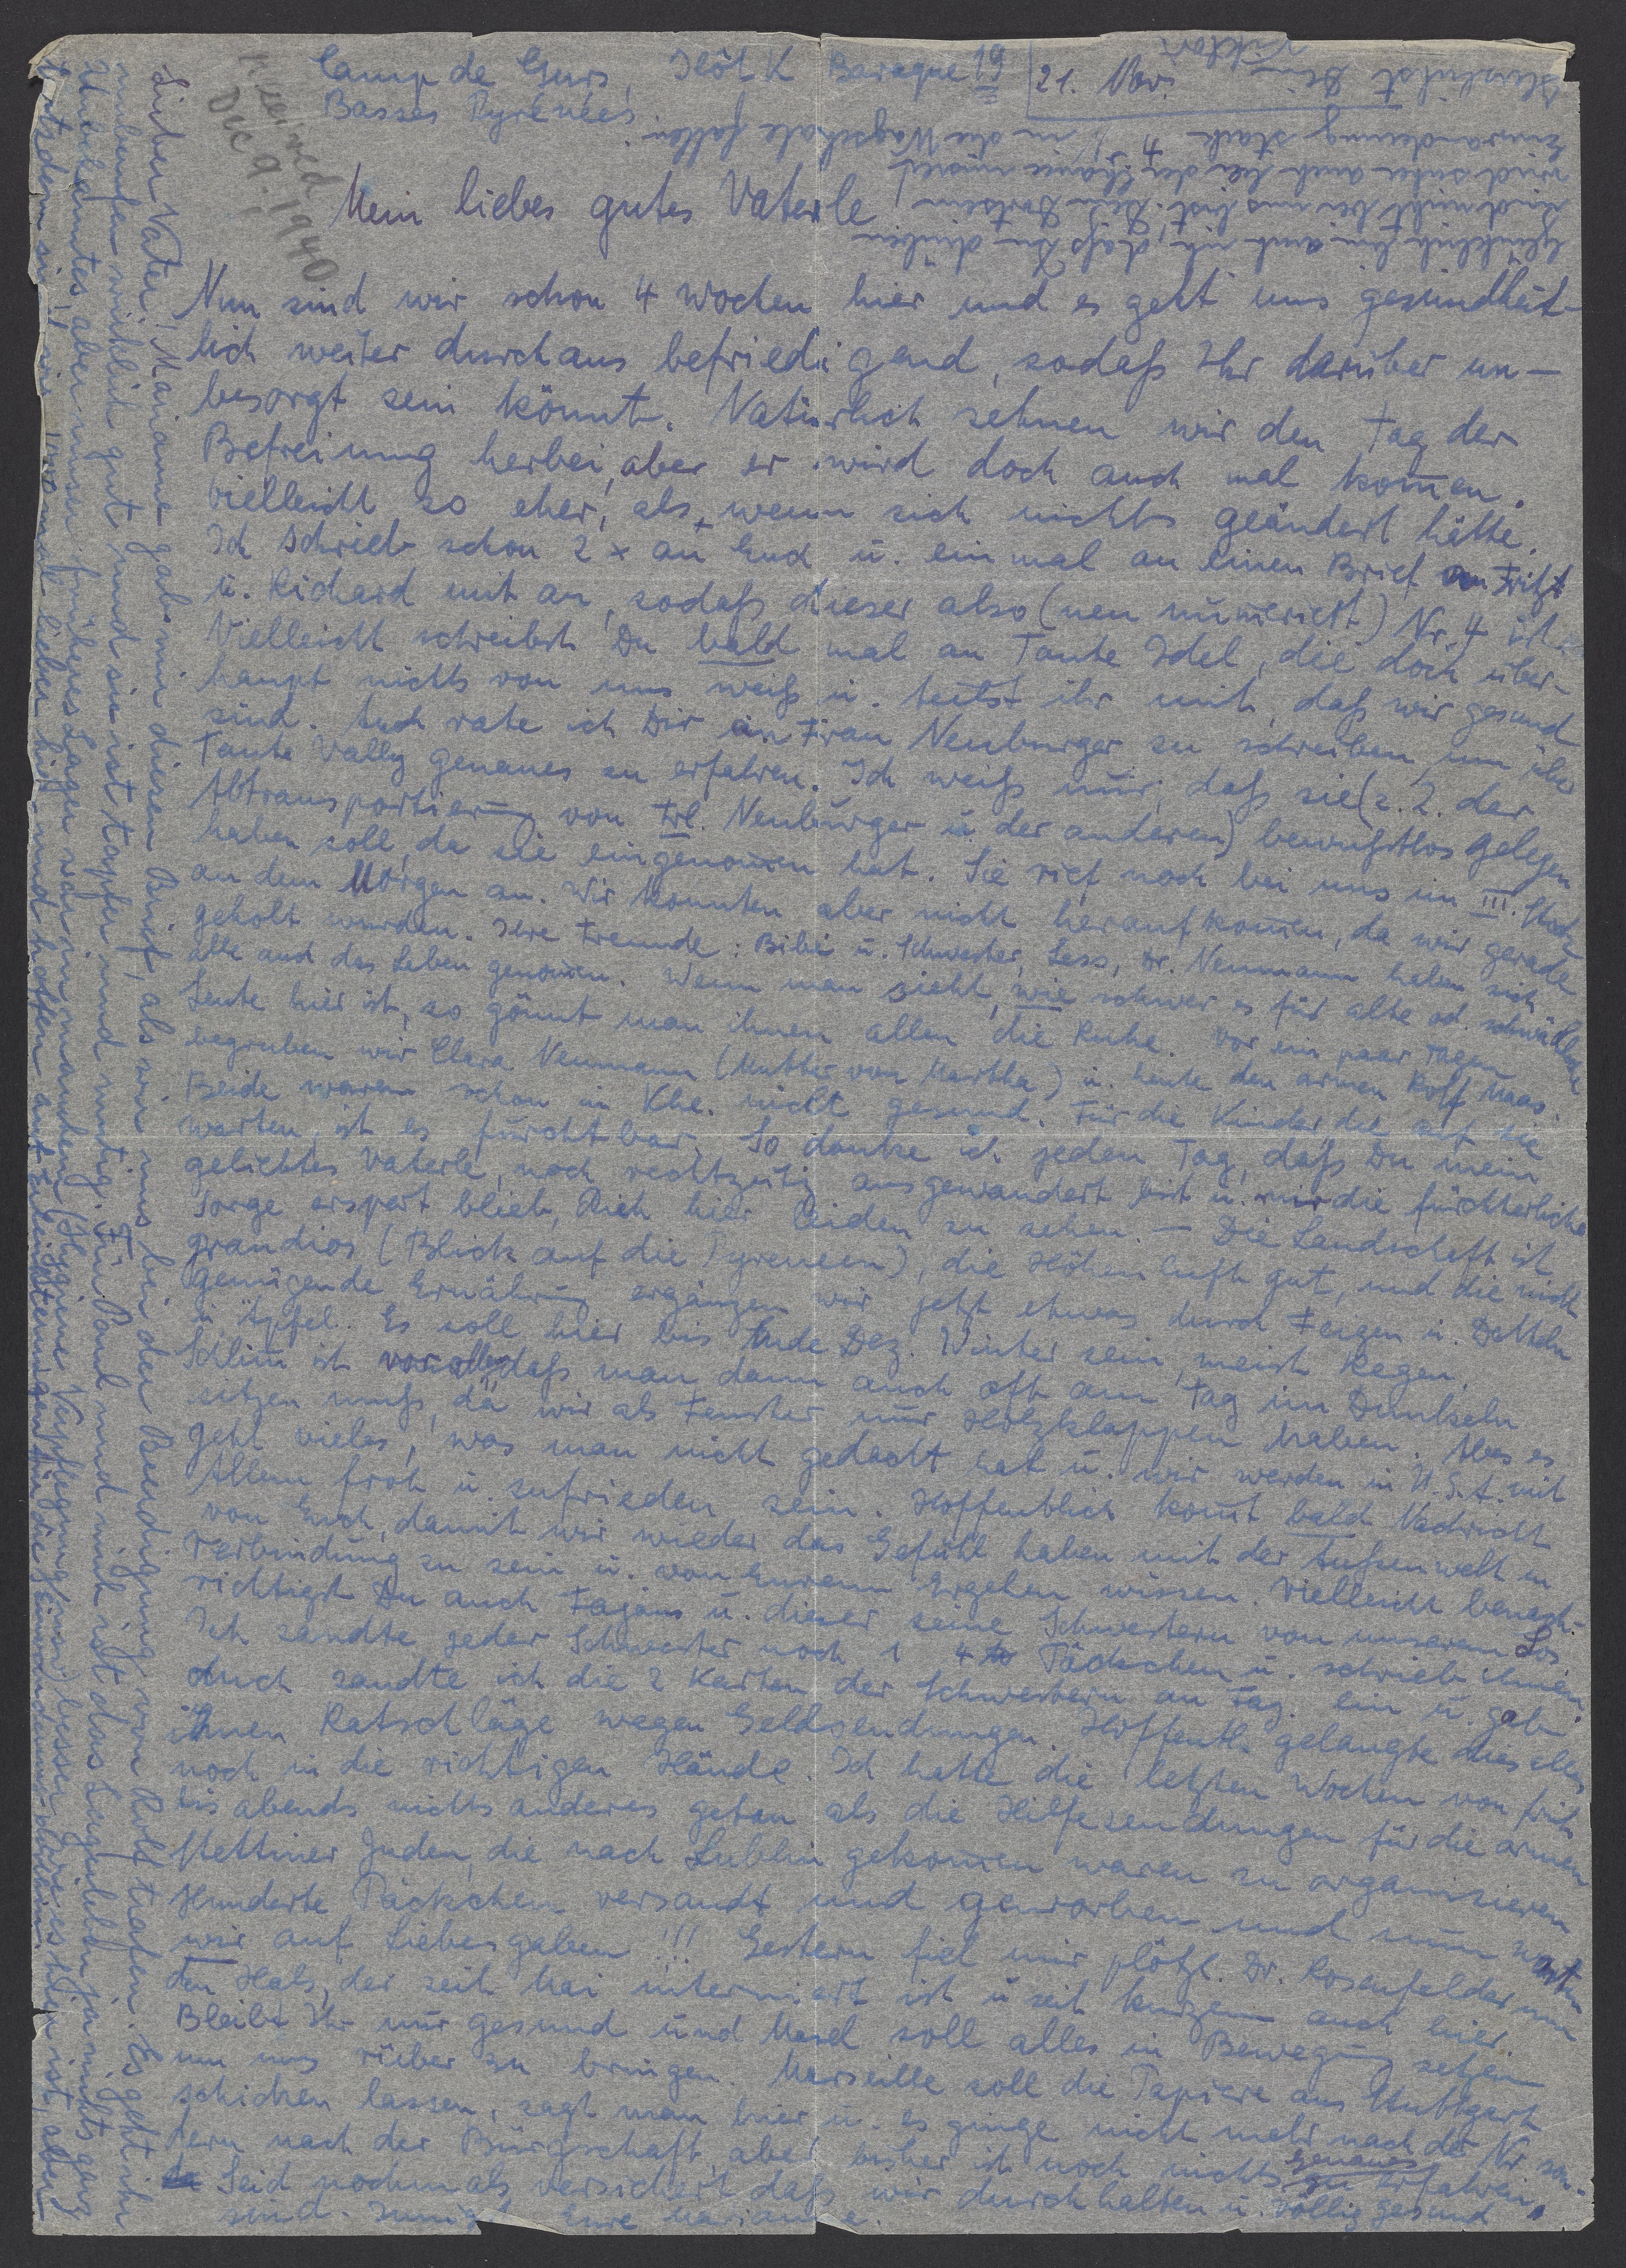 Camp de Gurs, Ilôt K Baraque 19 | 21. Nov.
Basses Pyrénées.
received
Dec 9. 1940
Mein liebes gutes Vaterle!
Nun sind wir schon 4 Wochen hier und es geht uns gesundheit-
lich weiter durchaus befriedigend, sodaß Ihr darüber un-
besorgt sein könnt. Natürlich sehnen wir den Tag der
Befreiung herbei, aber er wird doch auch mal kom̄en.
Vielleicht so eher, als wenn sich nichts geändert hätte.
Ich schrieb schon 2 x an Euch u. einmal an einen Brief an Fritz
u. Richard mit an, sodaß dieser also (neu num̄eriert) Nr. 4 ist.
Vielleicht schreibst Du bald mal an Tante Idel, die doch über-
haupt nichts von uns weiß u. teilst ihr mit, daß wir gesund
sind. Auch rate ich Dir an Frau Neuburger zu schreiben, um über
Tante Vally Genaues zu erfahren. Ich weiß nur, daß sie (z. Z. der
Abtransportierung von Frl. Neuburger u. der anderen) bewußtlos gelegen
haben soll, da sie eingenom̄en hat. Sie rief noch bei uns im III. Stock
an dem Morgen an. Wir konnten aber nicht heraufkom̄en, da wir gerade
geholt wurden. Ihre Freunde: Bibi u. Schwester, Less, Dr. Neumann haben sich
alle auch das Leben genom̄en. Wenn man sieht, wie schwer es für alte od. schwächere
Leute hier ist, so gönnt man ihnen allen die Ruhe. Vor ein paar Tagen
begruben wir Clara Neumann (Mutter von Martha) u. heute den armen Rolf Maas.
Beide waren schon in Khe. nicht gesund. Für die Kinder, die auf sie
warten, ist es furchtbar. So danke ich jeden Tag, daß Du mein
geliebtes Vaterle, noch rechtzeitig ausgewandert bist u. mir die fürchterliche
Sorge erspart blieb, Dich hier leiden zu sehen. — Die Landschaft ist
grandios (Blick auf die Pyreneen), die Höhenluft gut, und die nicht
genügende Ernährung ergänzen wir jetzt etwas durch Feigen u. Datteln
u. Äpfel. Es soll hier bis Ende Dez. Winter sein, meist Regen.
Schlim̄ ist vor allem daß man dann auch oft am Tag im Dunkeln
sitzen muß, da wir als Fenster nur Holzklappen haben. Aber es
geht vieles, was man nicht gedacht hat u. wir werden in U.S.A. mit
Allem froh u. zufrieden sein. Hoffentlich kom̄t bald Nachricht
von Euch, damit wir wieder das Gefühl haben mit der Außenwelt in
Verbindung zu sein u. von Eurem Ergehen wissen. Vielleicht benach-
richtigt Du auch Fajans u. dieser seine Schwestern von unserem Los.
Ich sandte jeder Schwester noch 1 4 Päckchen u. schrieb ihnen.
Auch sandte ich die 2 Karten der Schwestern an Faj. ein u. gab
ihnen Ratschläge wegen Geldsendungen. Hoffentl. gelangte dies alles
noch in die richtigen Hände. Ich hatte die letzten Wochen von früh
bis abends nichts anderes getan als die Hilfesendungen für die armen
Stettiner Juden, die nach Lublin gekom̄en waren zu organisieren
Hunderte Päckchen versandt und geworben und nun warten
wir auf Liebesgaben!!! Gestern fiel mir plötzl. Dr. Rosenfelder um
den Hals, der seit Mai interniert ist u. seit kurzem auch hier.
Bleibt Ihr nur gesund und Masel soll alles in Bewegung setzen
um uns rüber zu bringen. Marseille soll die Papiere aus Stuttgart
schicken lassen, sagt man hier u. es ginge nicht mehr nach der Nr. son-
dern nach der Bürgschaft, aber bisher ist noch nichts Genaues zu erfahren.
Seid nochmals versichert daß wir durchhalten u. völlig gesund
sind. Innigst Eure Marianne.
Lieber Vater! Marianne gab mir diesen Brief, als wir uns bei der Beerdigung von Rolf trafen. Es geht ihr
wirklich gut und sie ist tapfer und mutig. Für Paul und mich ist das Lagerleben ja nichts ganz
Unbekanntes, aber unser früheres Lager war in manchem (Hygiene, Verpflegung) besser
trotzdem sind wir lieber hier und hoffen
glücklich bin auch ich, daß Du drüben
und nicht bei uns bist. Dein Dortsein
wird sicher auch bei der Chance unserer
Einwanderung stark in die Wagschale fallen.
Herzlichst Dein
Viktor